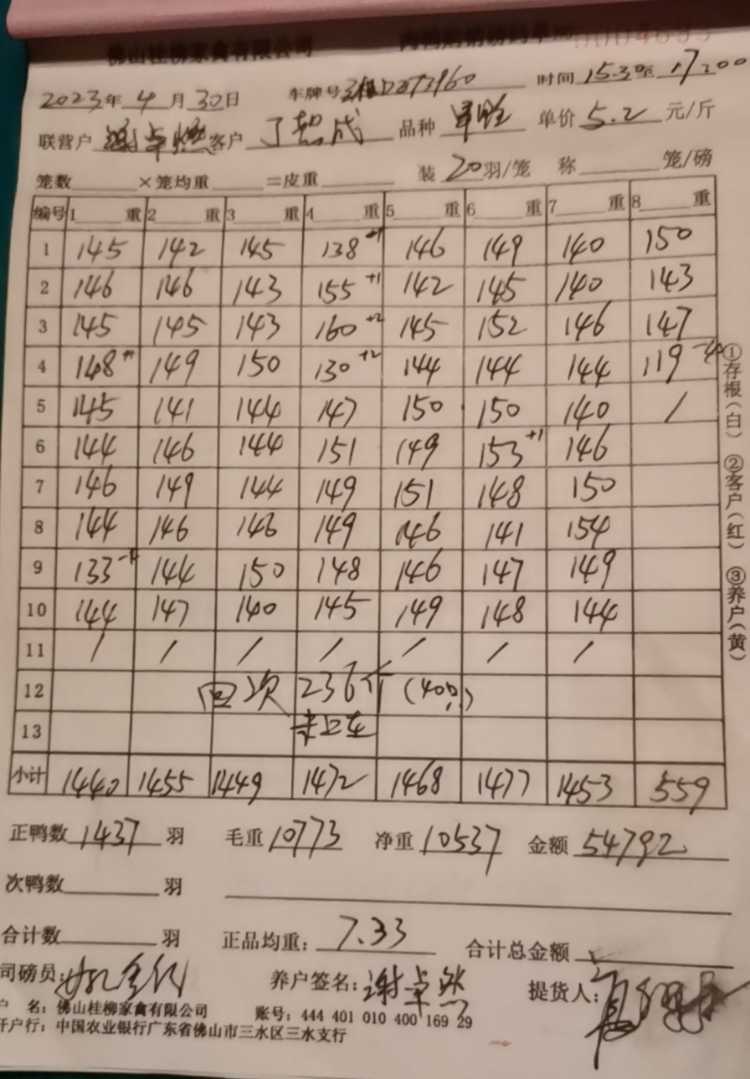 佛山桂柳家禽有限公司
2023年 4 月 30日 车牌号 时间 15.30 17:00
联营户 谢卓燃 客户 丁 成 品种 单价 5.2 元/斤
笼数 ×笼均重 =皮重 装 20 羽/笼 称 笼/磅
编号 1 重 2 重 3 重 4 重 5 重 6 重 7 重 8 重
1 145 142 145 138 146 149 140 150
2 146 146 143 155+1 142 145 140 143
3 145 145 143 160+2 145 152 146 147
4 148+1 149 150 130+2 144 144 144 119
5 145 141 144 147 150 150 140 /
6 144 146 144 151 149 153+1 146
7 146 149 144 149 151 148 150
8 144 146 146 149 146 141 154
9 133-4 144 150 148 146 147 149
10 144 147 140 145 149 148 144
11 / / / / / / /
12 回次 236斤
13
小计 1440 1455 1449 1472 1468 1477 1453 559
正鸭数 1437 羽 毛重 10773 净重 10537 金额 54792
次鸭数 羽
合计数 羽 正品均重: 7.33 合计总金额
司磅员: 养户签名: 谢卓然 提货人:
户 名: 佛山桂柳家禽有限公司 账号: 444 401 010 400 169 29
开户行: 中国农业银行广东省佛山市三水区三水支行
①存根(白) ②客户(红) ③养户(黄)